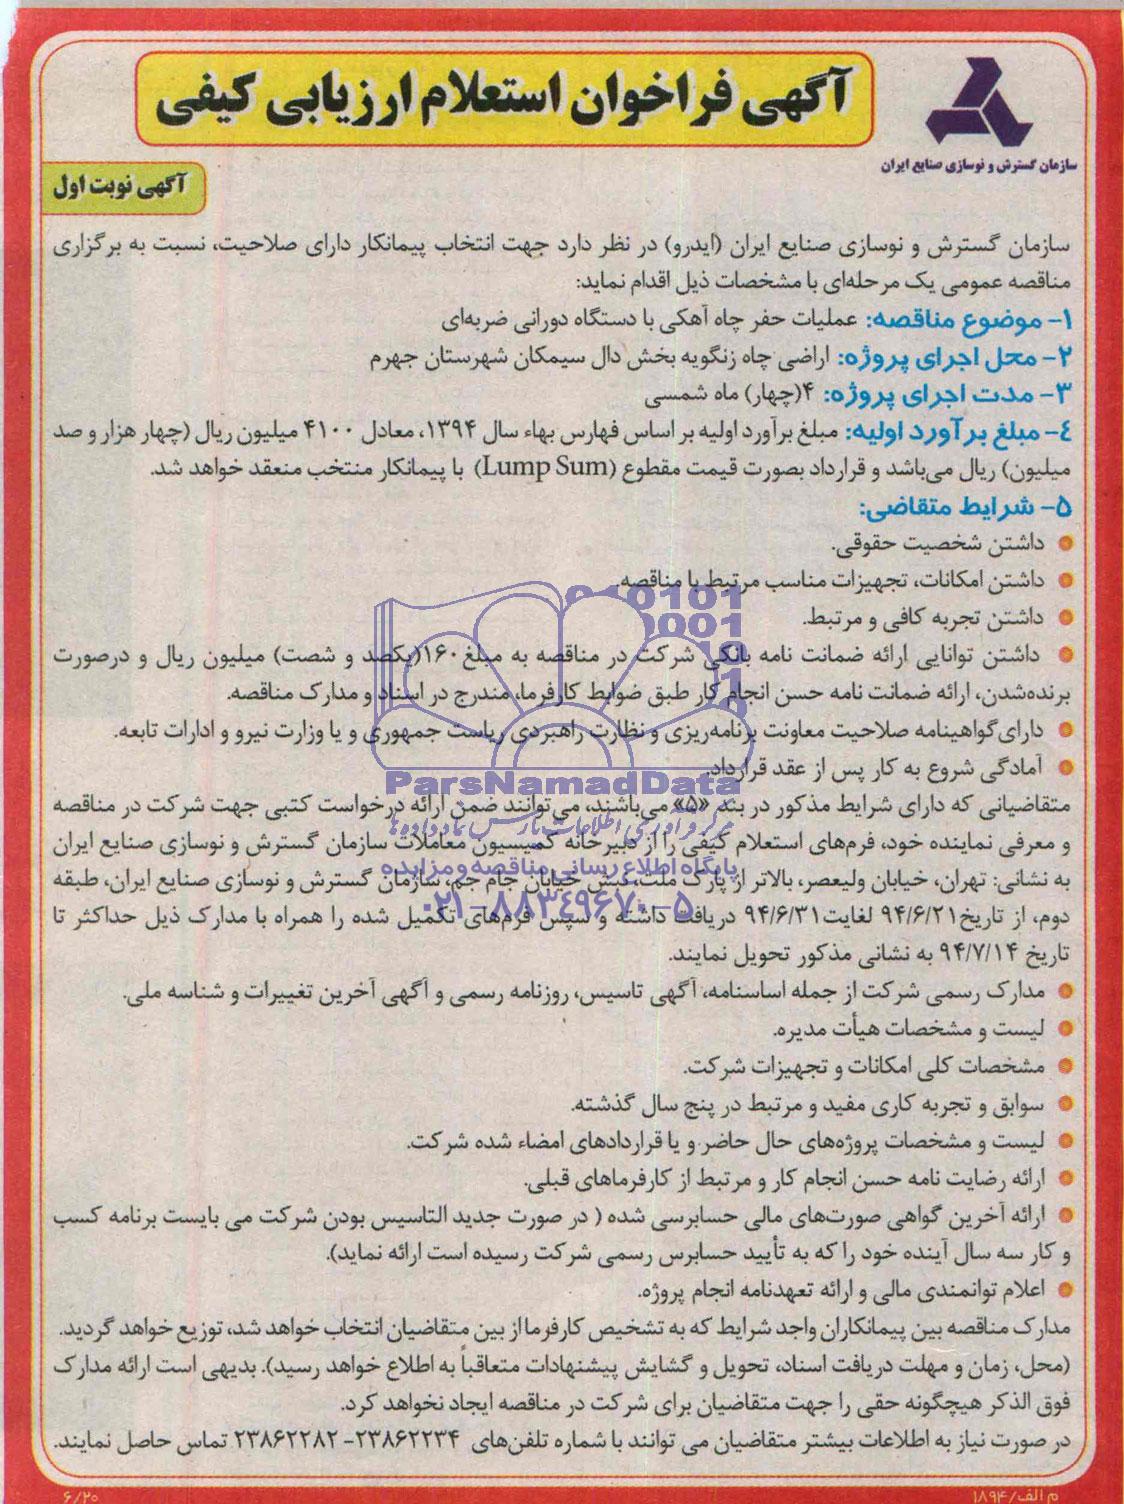 آگهی فراخوان استعلام ارزیابی کیفی
سازمان گسترش و نوسازی صنایع ایران
آگهی نوبت اول
سازمان گسترش و نوسازی صنایع ایران (ایدرو) در نظر دارد جهت انتخاب پیمانکار دارای صلاحیت، نسبت به برگزاری
مناقصه عمومی یک مرحله‌ای با مشخصات ذیل اقدام نماید:
۱- موضوع مناقصه: عملیات حفر چاه آهکی با دستگاه دورانی ضربه‌ای
۲- محل اجرای پروژه: اراضی چاه زنگویه بخش دال سیمکان شهرستان جهرم
۳- مدت اجرای پروژه: ۴(چهار) ماه شمسی
۴- مبلغ برآورد اولیه: مبلغ برآورد اولیه بر اساس فهارس بهاء سال ۱۳۹۴، معادل ۴۱۰۰ میلیون ریال (چهار هزار و صد
میلیون) ریال می‌باشد و قرارداد بصورت قیمت مقطوع (Lump Sum) با پیمانکار منتخب منعقد خواهد شد.
۵- شرایط متقاضی:
داشتن شخصیت حقوقی.
داشتن امکانات، تجهیزات مناسب مرتبط با مناقصه.
داشتن تجربه کافی و مرتبط.
داشتن توانایی ارائه ضمانت نامه بانکی شرکت در مناقصه به مبلغ ۱۶۰(یکصد و شصت) میلیون ریال و درصورت
برنده‌شدن، ارائه ضمانت نامه حسن انجام کار طبق ضوابط کارفرما، مندرج در اسناد و مدارک مناقصه.
دارای گواهینامه صلاحیت معاونت برنامه‌ریزی و نظارت راهبردی ریاست جمهوری و یا وزارت نیرو و ادارات تابعه.
آمادگی شروع به کار پس از عقد قرارداد.
ParsNamadData
متقاضیانی که دارای شرایط مذکور در بند «۵» می‌باشند، می‌توانند ضمن ارائه درخواست کتبی جهت شرکت در مناقصه
مرکز فرآوری اطلاعات پارس نماد داده‌ها
و معرفی نماینده خود، فرم‌های استعلام کیفی را از دبیرخانه کمیسیون معاملات سازمان گسترش و نوسازی صنایع ایران
پایگاه اطلاع رسانی مناقصه و مزایده
به نشانی: تهران، خیابان ولیعصر، بالاتر از پارک ملت، نبش خیابان جام جم، سازمان گسترش و نوسازی صنایع ایران، طبقه
۰۲۱-۸۸۳۴۹۶۷۰-۵
دوم، از تاریخ ۹۴/۶/۲۱ لغایت ۹۴/۶/۳۱ دریافت داشته و سپس فرم‌های تکمیل شده را همراه با مدارک ذیل حداکثر تا
تاریخ ۹۴/۷/۱۴ به نشانی مذکور تحویل نمایند.
مدارک رسمی شرکت از جمله اساسنامه، آگهی تاسیس، روزنامه رسمی و آگهی آخرین تغییرات و شناسه ملی.
لیست و مشخصات هیأت مدیره.
مشخصات کلی امکانات و تجهیزات شرکت.
سوابق و تجربه کاری مفید و مرتبط در پنج سال گذشته.
لیست و مشخصات پروژه‌های حال حاضر و یا قراردادهای امضاء شده شرکت.
ارائه رضایت نامه حسن انجام کار و مرتبط از کارفرماهای قبلی.
ارائه آخرین گواهی صورت‌های مالی حسابرسی شده ( در صورت جدید التاسیس بودن شرکت می بایست برنامه کسب
و کار سه سال آینده خود را که به تأیید حسابرس رسمی شرکت رسیده است ارائه نماید).
اعلام توانمندی مالی و ارائه تعهدنامه انجام پروژه.
مدارک مناقصه بین پیمانکاران واجد شرایط که به تشخیص کارفرما از بین متقاضیان انتخاب خواهد شد، توزیع خواهد گردید.
(محل، زمان و مهلت دریافت اسناد، تحویل و گشایش پیشنهادات متعاقباً به اطلاع خواهد رسید). بدیهی است ارائه مدارک
فوق الذکر هیچگونه حقی را جهت متقاضیان برای شرکت در مناقصه ایجاد نخواهد کرد.
در صورت نیاز به اطلاعات بیشتر متقاضیان می توانند با شماره تلفن‌های ۲۳۸۶۲۲۳۴- ۲۳۸۶۲۲۸۲ تماس حاصل نمایند.
م الف/۱۸۹۴
۶/۲۰